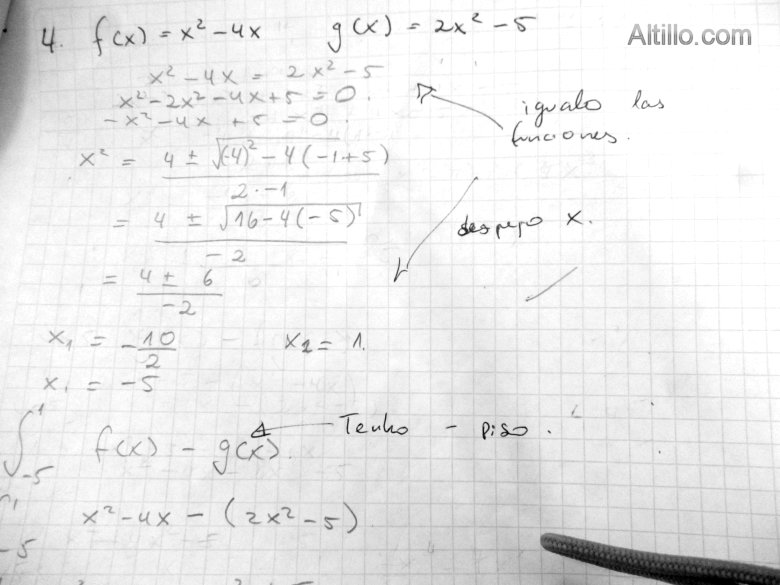 4. f(x) = x² - 4x g(x) = 2x² - 5
Altillo.com
x² - 4x = 2x² - 5
x² - 2x² - 4x + 5 = 0.
-x² - 4x + 5 = 0.
igualo las
funciones.
x² = (4 ± √((-4)² - 4(-1+5))) / (2·-1)
= (4 ± √(16 - 4(-5))) / -2
despejo x.
= (4 ± 6) / -2
x₁ = -10/2 x₂ = 1.
x₁ = -5
∫₋₅¹ f(x) - g(x). Techo - piso.
∫₋₅¹ x² - 4x - (2x² - 5)